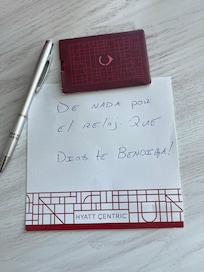 DE NADA POR
El RElOJ. QUE
DIOS tE BENDIGA!
HYATT CENTRIC